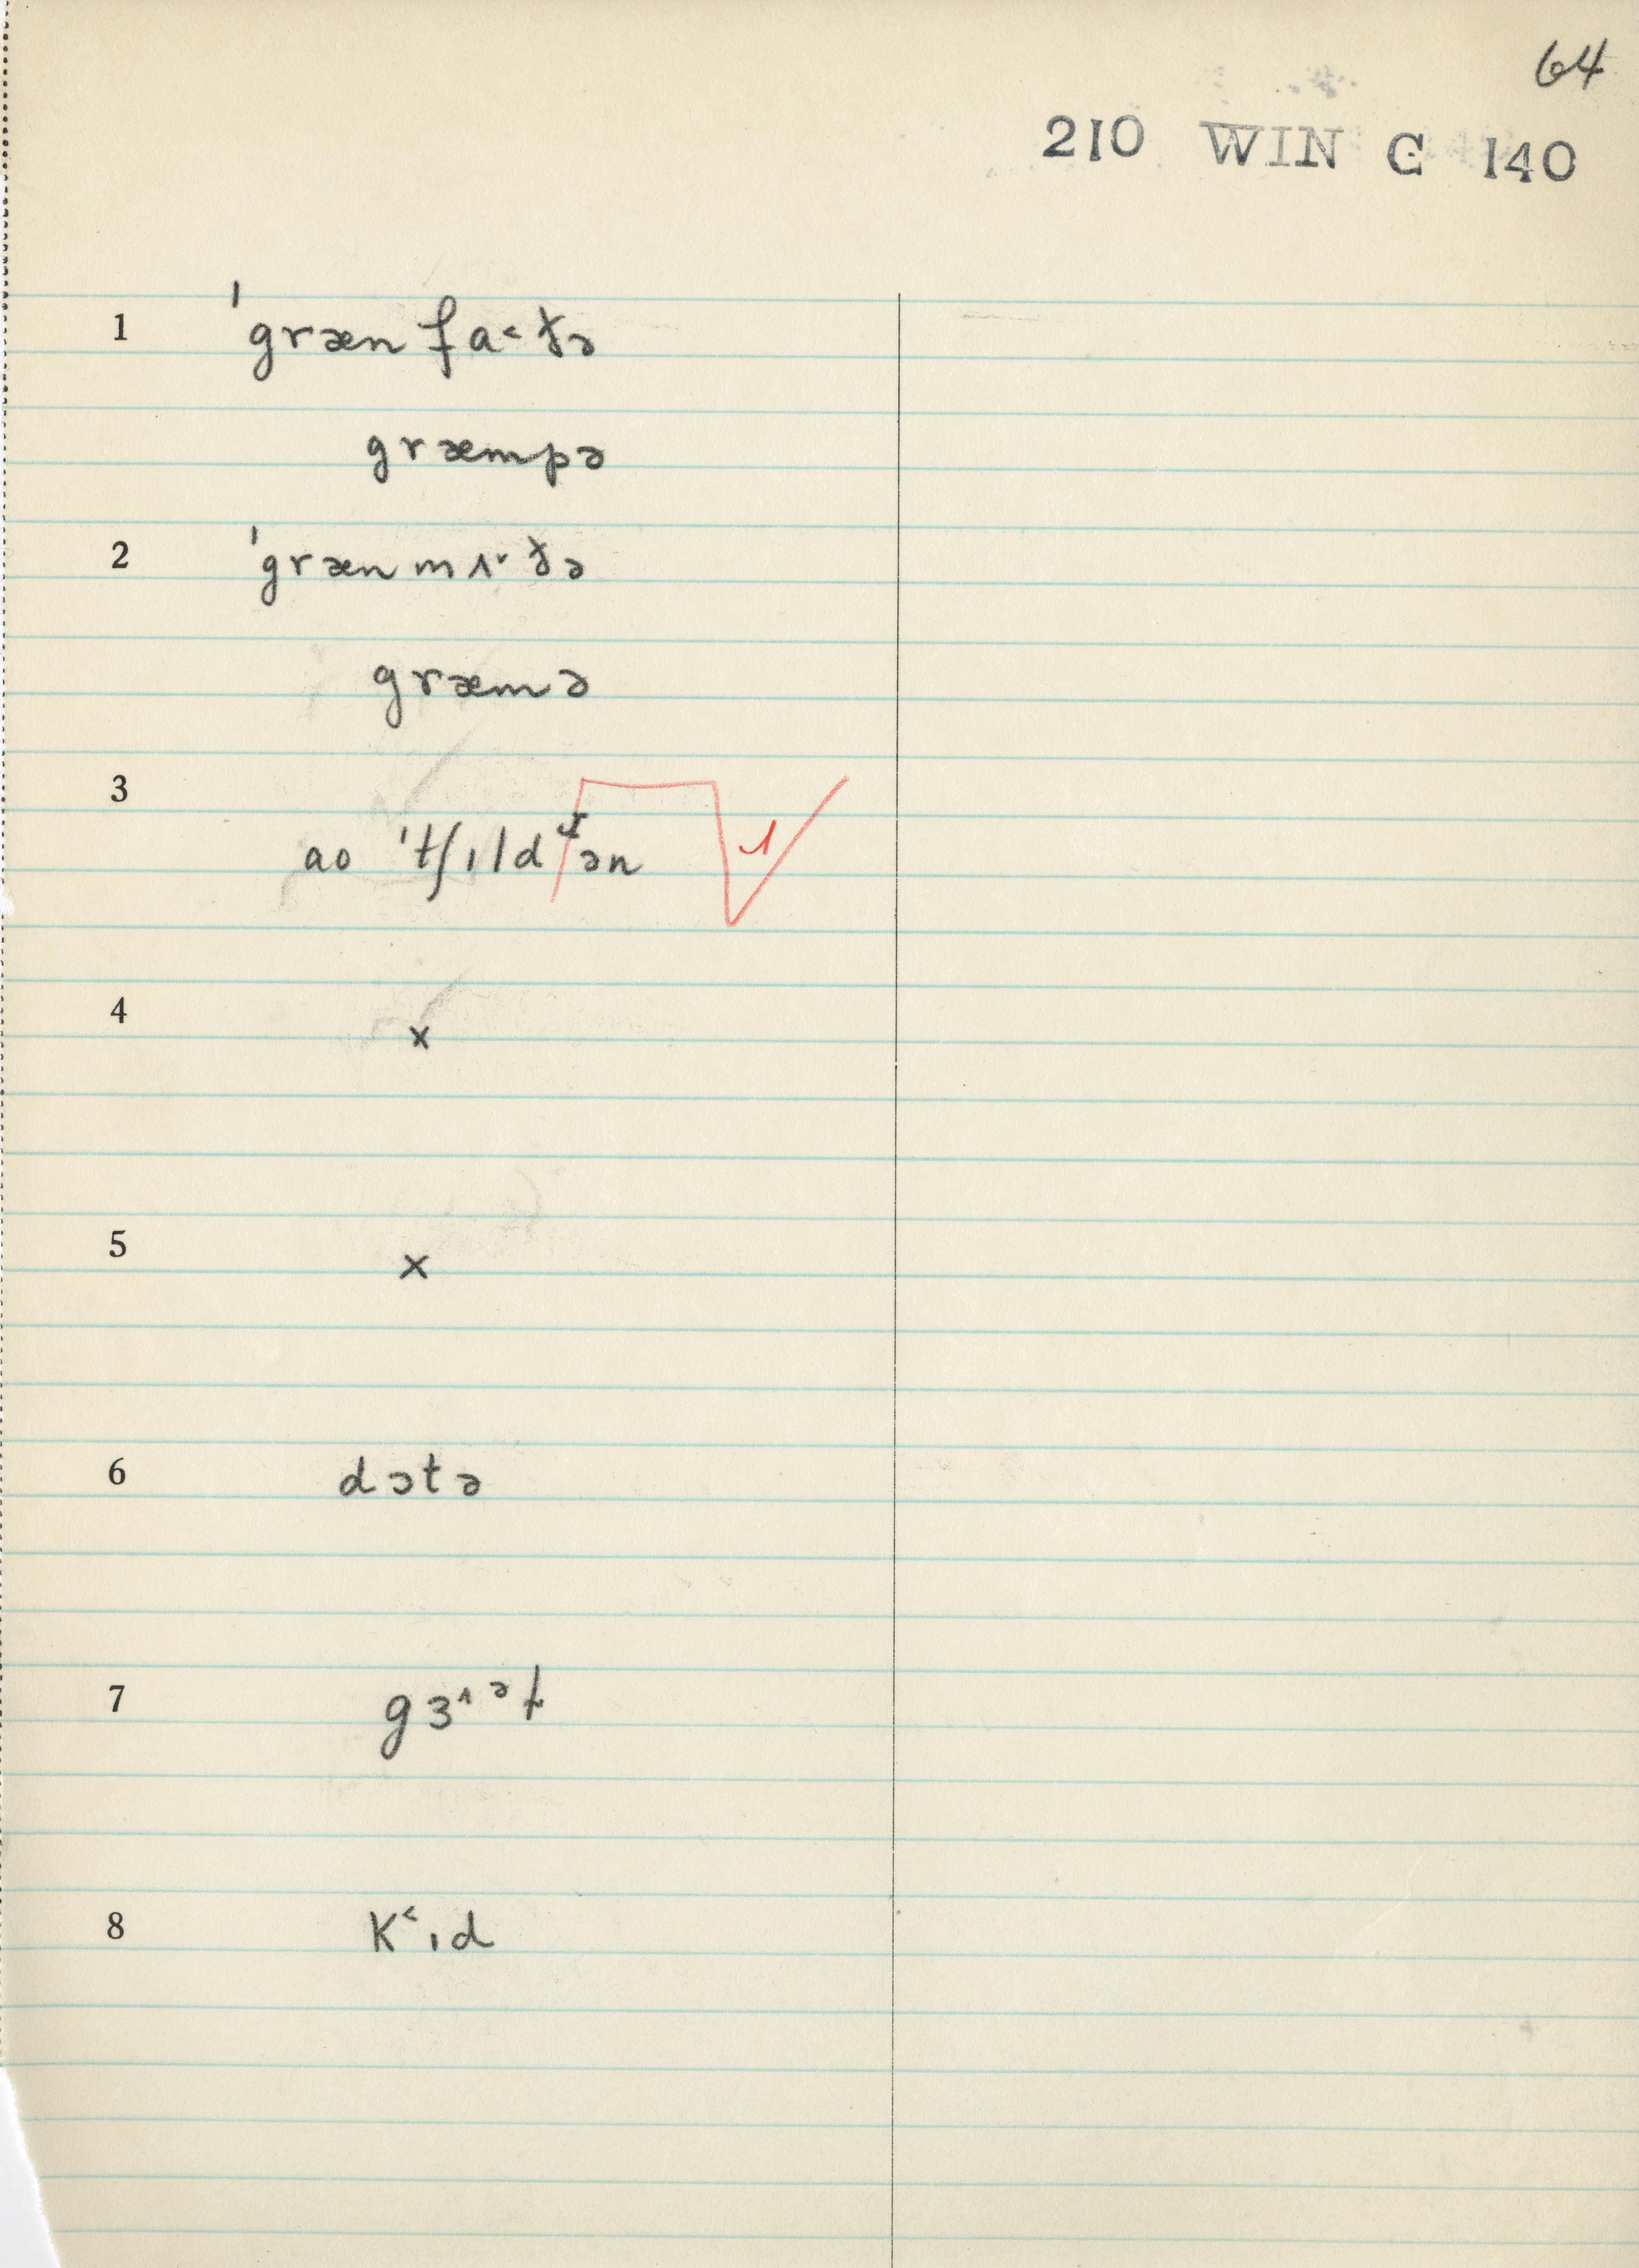 64
210 WIN C 140
1 ˈgræn fa˂ðə
græmpə
2 ˈgræn mʌ˅ðə
græmə
3 ao ˈtʃɪldɹən 1
4 x
5 x
6 dɔtə
7 gɜ˄ᵊɫ
8 K˂ɪd